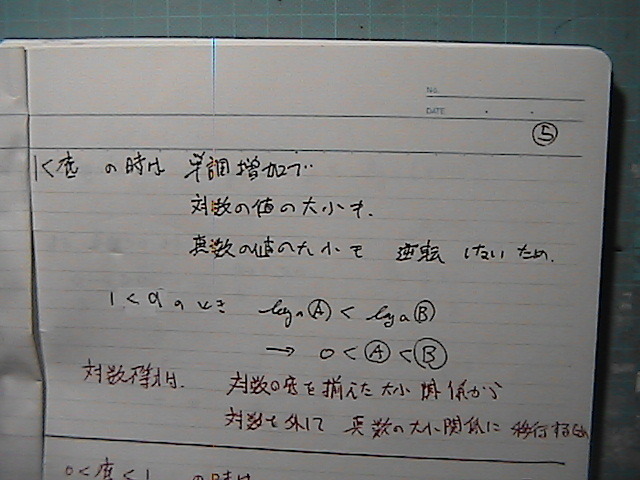 No.
DATE
⑤
1<底 の時は 単調増加で
対数の値の大小も、
真数の値の大小も 逆転 しないため、
1<aのとき logₐⒶ < logₐⒷ
→ 0<Ⓐ<Ⓑ
対数 は、 対数の底を揃えた大小関係から
対数を外して 真数の大小関係に 移行する
0<底<1 の時は